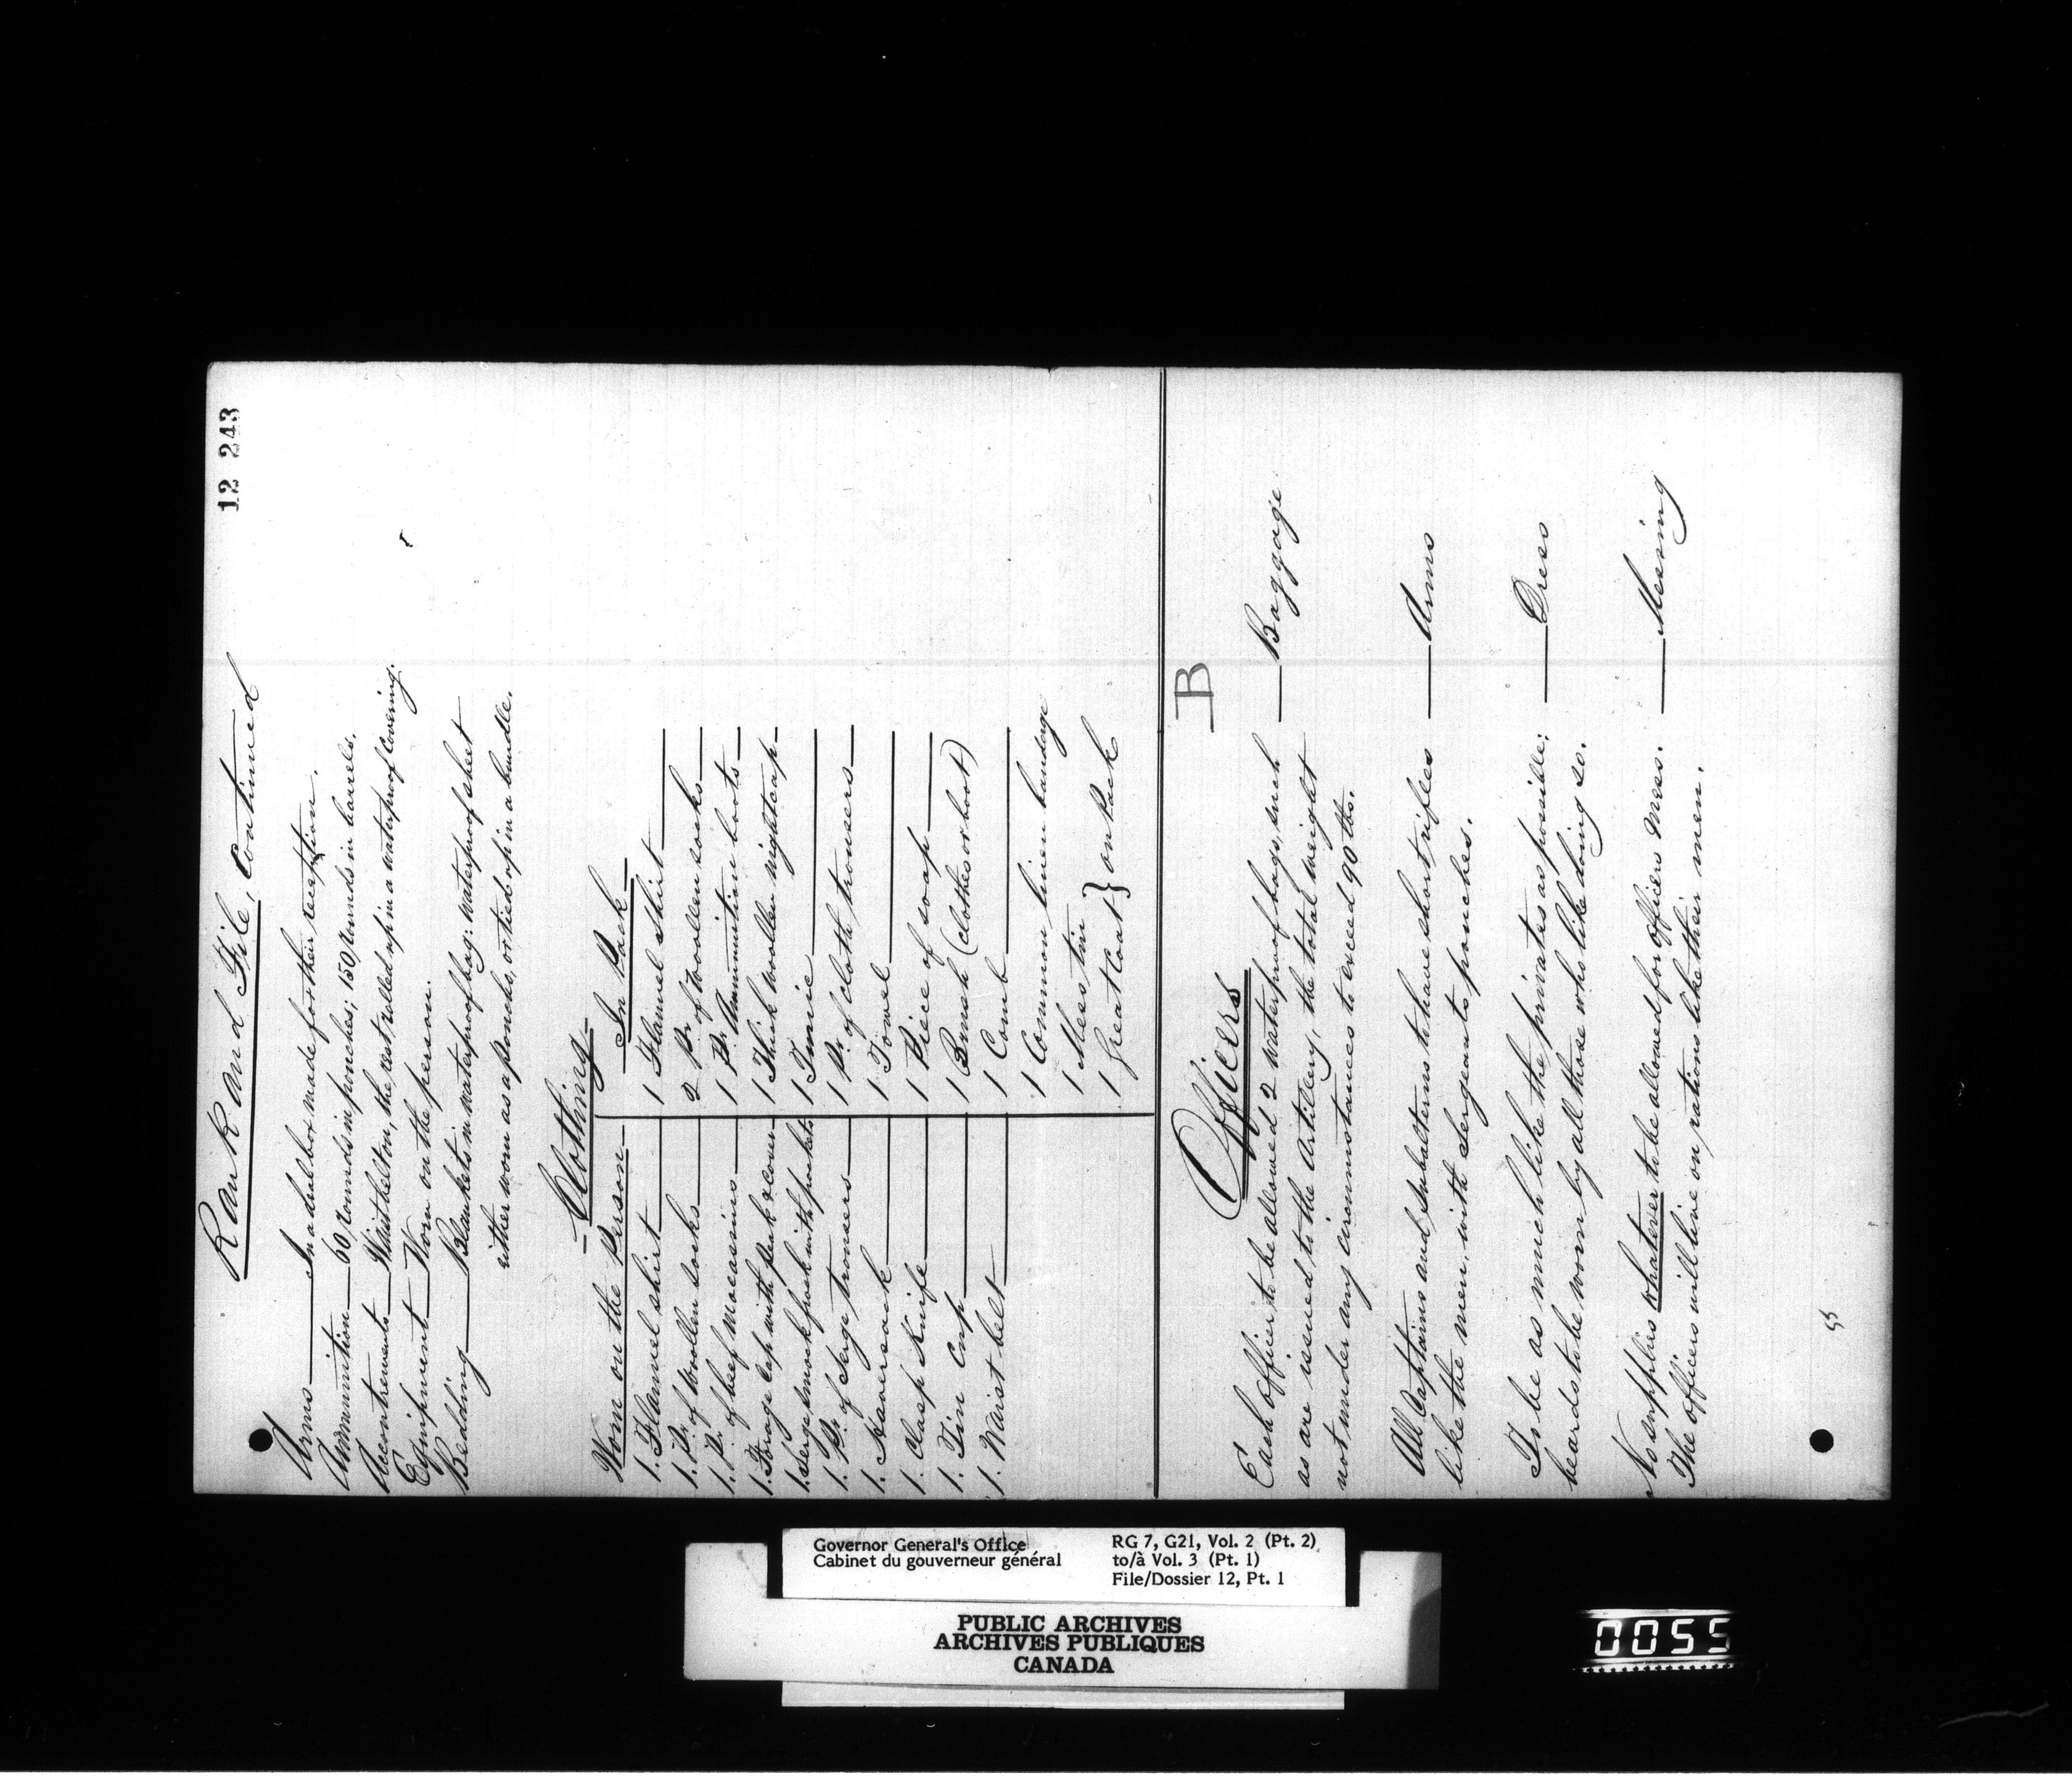 12 243
Rank and File, Continued
Arms In a deal box made for their reception.
Ammunition 60 rounds in pouches; 150 rounds in barrels.
Accoutrements Waistbelt on, the rest rolled up in a waterproof covering.
Equipment Worn on the person.
Bedding Blankets in waterproof bag: waterproof sheet
either worn as a poncho, or tied up in a bundle.
Clothing
Worn on the Person
1. Flannel shirt
1. Pr. of Woollen socks
1. Pr. of beef mocassins
1. Forage Cap with peak & cover
1. Serge smock frock with pockets
1. Pr. of Serge trousers
1. Haversack
1. Clasp Knife
1. Tin Cup
1. Waist belt
In Pack
1 Flannel shirt
2 Pr. of Woollen socks
1 Pr. Ammunition boots
1 Thick woollen nightcap
1 Tunic
1 Pr. of cloth trousers
1 Towel
1 Piece of soap
1 Brush (clothes or boot)
1 Comb
1 Common linen bandage
1 Mess tin
1 Great Coat } on Pack
B
Officers
Each officer to be allowed 2 waterproof bags, such Baggage
as are issued to the Artillery, the total weight
not under any circumstances to exceed 90 lbs.
All Captains and Subalterns to have short rifles Arms
like the men, with Sergeants pouches.
To be as much like the privates as possible: Dress
beards to be worn by all those who like doing so.
No supplies whatever to be allowed for Officers Mess. Messing
The officers will live on rations like their men.
55
Governor General's Office
Cabinet du gouverneur général
RG 7, G21, Vol. 2 (Pt. 2)
to/à Vol. 3 (Pt. 1)
File/Dossier 12, Pt. 1
PUBLIC ARCHIVES
ARCHIVES PUBLIQUES
CANADA
0055